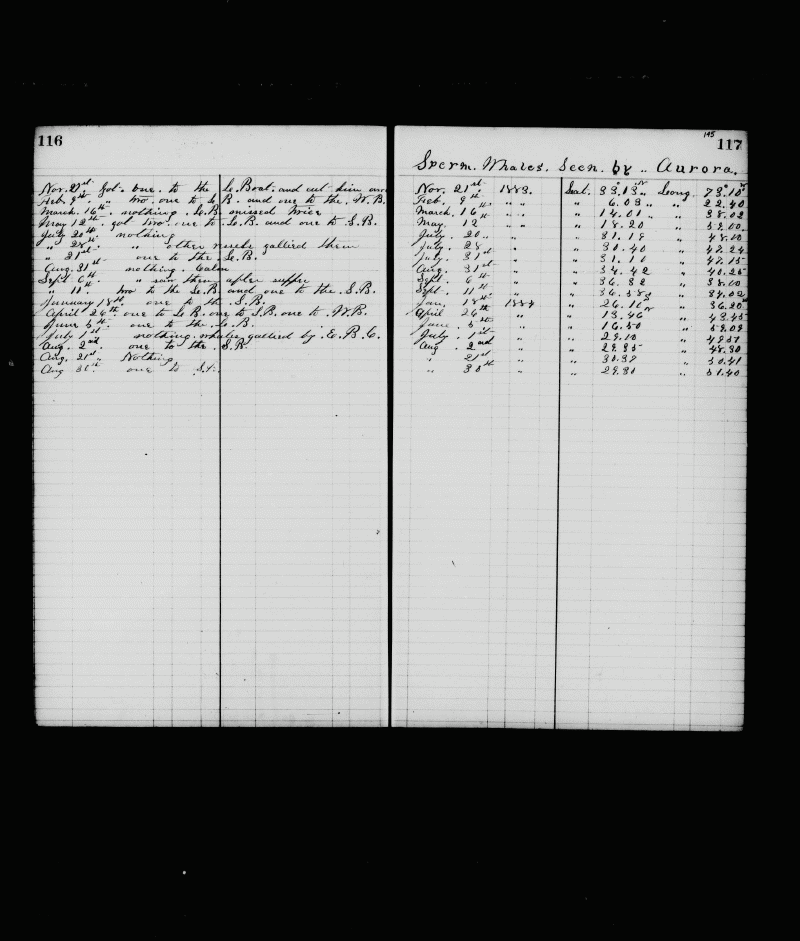 116
Nov. 21st. Got one to the La. Boat. and cut him
Feb. 9th. " two. one to La. B. and one to the. W. B.
March. 16th. nothing. La. B. missed twice
May 12th. got two. one to La. B. and one to S. B.
July 20th. nothing
" 28th. " other vessels gallied them
" 31st one to the La. B.
Aug. 31st nothing. Calm
Sept. 6th. " saw them after supper
" 11th. two to the La. B. and one to the. S. B.
January 18th. one to the. S. B.
April 26th. one to La B. one to S. B. one to W. B.
June 5th. one to the. La. B.
July 1st. nothing. whales gallied by
Aug. 2nd. one to the. S. B.
Aug. 21st. Nothing
Aug 30th. one to
195
117
Sperm. Whales. Seen. by " Aurora.
Nov. 21st 1883. Lat. 33.13 Long. 73.10
Feb. 9th " " " 6.03 " " 22.40
March. 16th " " " 14.01 " " 38.02
May. 12 " " " 18.20 " 39.00
July. 20 " " " 31.19 " 48.00
July. 28 " " 30.40 " 47.24
July. 31st " " 31.10 " 47.15
Aug. 31st " " 34.42 " 40.25
Sept. 6th " " 36.32 " 38.00
Sept. 11th " " 36.38 " 34.02
Jan. 18th 1884 " 26.16 " 36.20
April 26th " " 13.46 " 43.45
June. 5th " " 16.50 " 59.09
July. 1st " " 29.10 " 49.51
Aug. 2nd " " 29.35 " 48.30
" 21st " " 30.39 " 50.41
" 30th " " 29.31 " 51.40